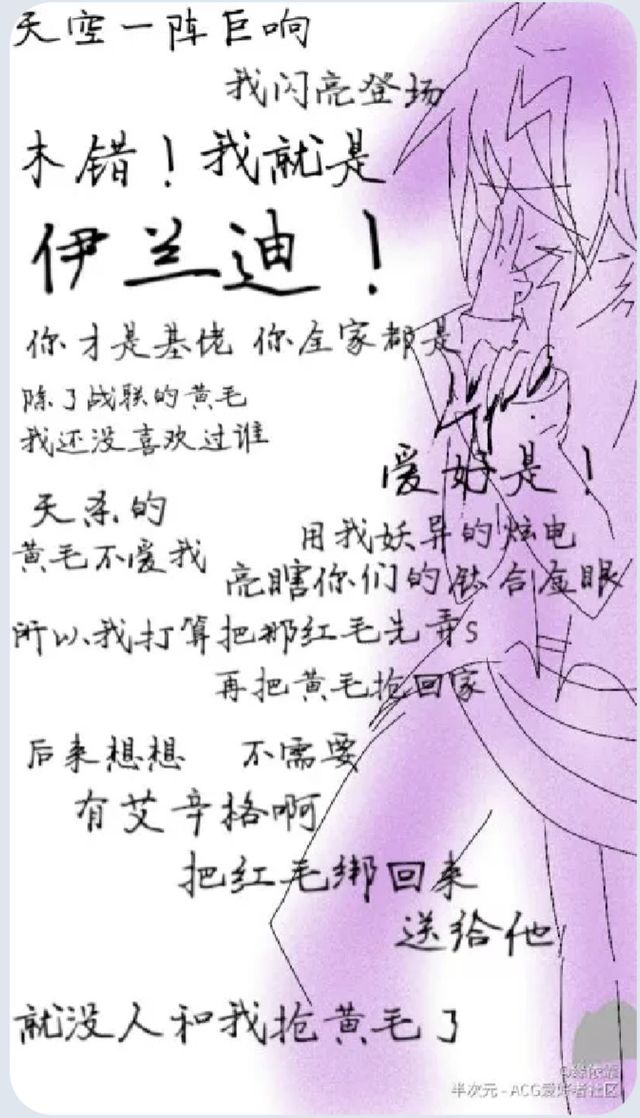 天空一阵巨响
我闪亮登场
木错！我就是
伊兰迪！
你才是基佬 你全家都是
除了战联的黄毛
我还没喜欢过谁
爱好是！
天杀的
黄毛不爱我
用我妖异的炫电
亮瞎你们的钛合金眼
所以我打算把那红毛先弄s
再把黄毛抢回家
后来想想 不需要
有艾辛格啊
把红毛绑回来
送给他
就没人和我抢黄毛了
半次元 - ACG爱好者社区